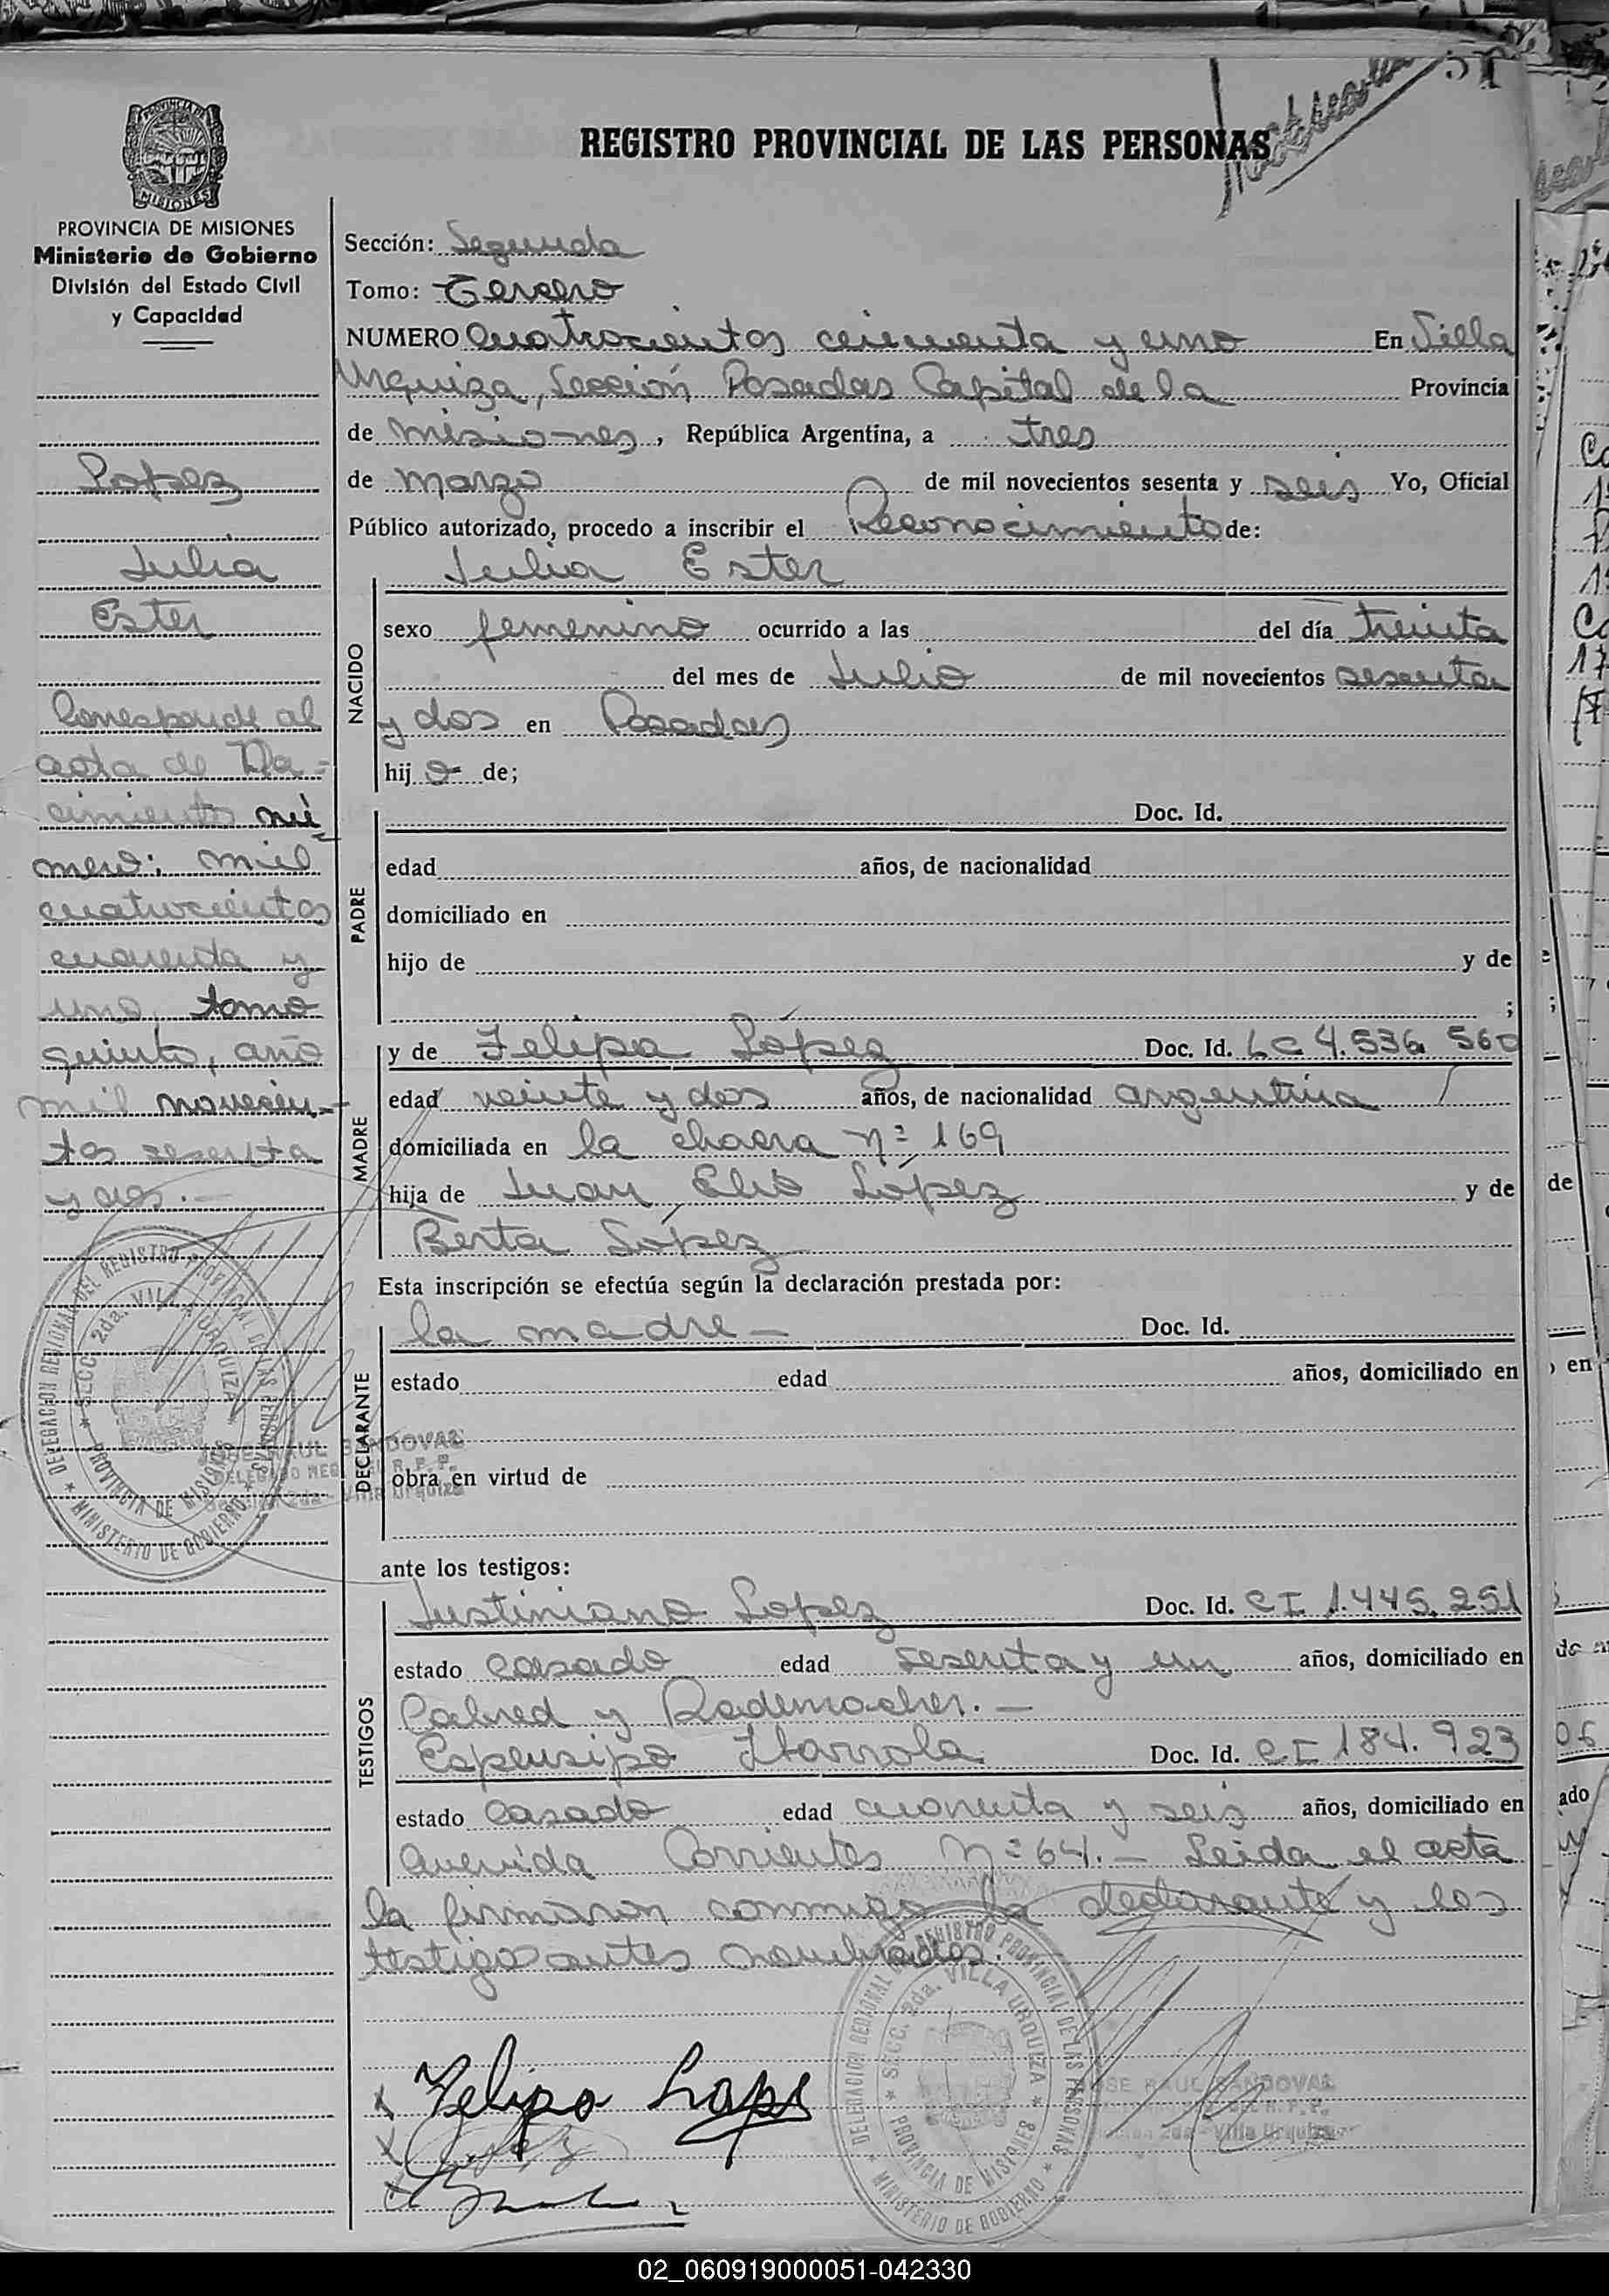 51
REGISTRO PROVINCIAL DE LAS PERSONAS
PROVINCIA DE MISIONES
MISIONES
PROVINCIA DE MISIONES
Ministerio de Gobierno
División del Estado Civil
y Capacidad
Lopez
Julia
Ester
Corresponde al
acta de Na-
cimiento nú-
mero: mil
cuatrocientos
cuarenta y
uno, tomo
quinto, año
mil novecien-
tos sesenta
y dos.-
Sección: Segunda
Tomo: Tercero
NUMERO Cuatrocientos cincuenta y uno En Villa
Urquiza, Sección Posadas Capital de la Provincia
de Misiones, República Argentina, a tres
de marzo de mil novecientos sesenta y seis Yo, Oficial
Público autorizado, procedo a inscribir el Reconocimiento de:
NACIDO
Julia Ester
sexo femenino ocurrido a las del día treinta
del mes de Julio de mil novecientos sesenta
y dos en Posadas
hij a de;
PADRE
Doc. Id.
edad años, de nacionalidad
domiciliado en
hijo de y de
;
MADRE
y de Felipa López Doc. Id. LC 4.536 560
edad veinte y dos años, de nacionalidad argentina
domiciliada en la chacra Nº 169
hija de Juan Elio López y de
Berta López
Esta inscripción se efectúa según la declaración prestada por:
DECLARANTE
la madre - Doc. Id.
estado edad años, domiciliado en
obra en virtud de
ante los testigos:
TESTIGOS
Justiniano Lopez Doc. Id. CI 1.445.251
estado casado edad sesenta y un años, domiciliado en
Cabred y Rademacher.-
Espeusipo Ibarrola Doc. Id. CI 184.923
estado casado edad cuarenta y seis años, domiciliado en
Avenida Corrientes Nº 64.- Leida el acta
la firmaron conmigo la declarante y los
testigos antes nombrados.
Felipa Lopez
DELEGACION REGIONAL DEL REGISTRO PROVINCIAL DE LAS PERSONAS
SECC. 2da. VILLA URQUIZA
PROVINCIA DE MISIONES
MINISTERIO DE GOBIERNO
JOSE RAUL SANDOVAL
DELEGADO REG. DEL R. P. P.
Sección 2da - Villa Urquiza
DELEGACION REGIONAL DEL REGISTRO PROVINCIAL DE LAS PERSONAS
SECC. 2da. VILLA URQUIZA
PROVINCIA DE MISIONES
MINISTERIO DE GOBIERNO
JOSE RAUL SANDOVAL
DEL R. P. P.
Sección 2da - Villa Urquiza
02_060919000051-042330